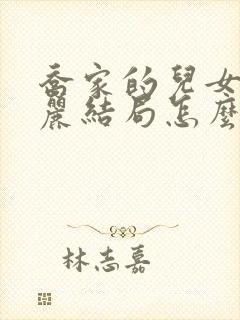 喬家的兒女
麗結局怎麼
林志嘉